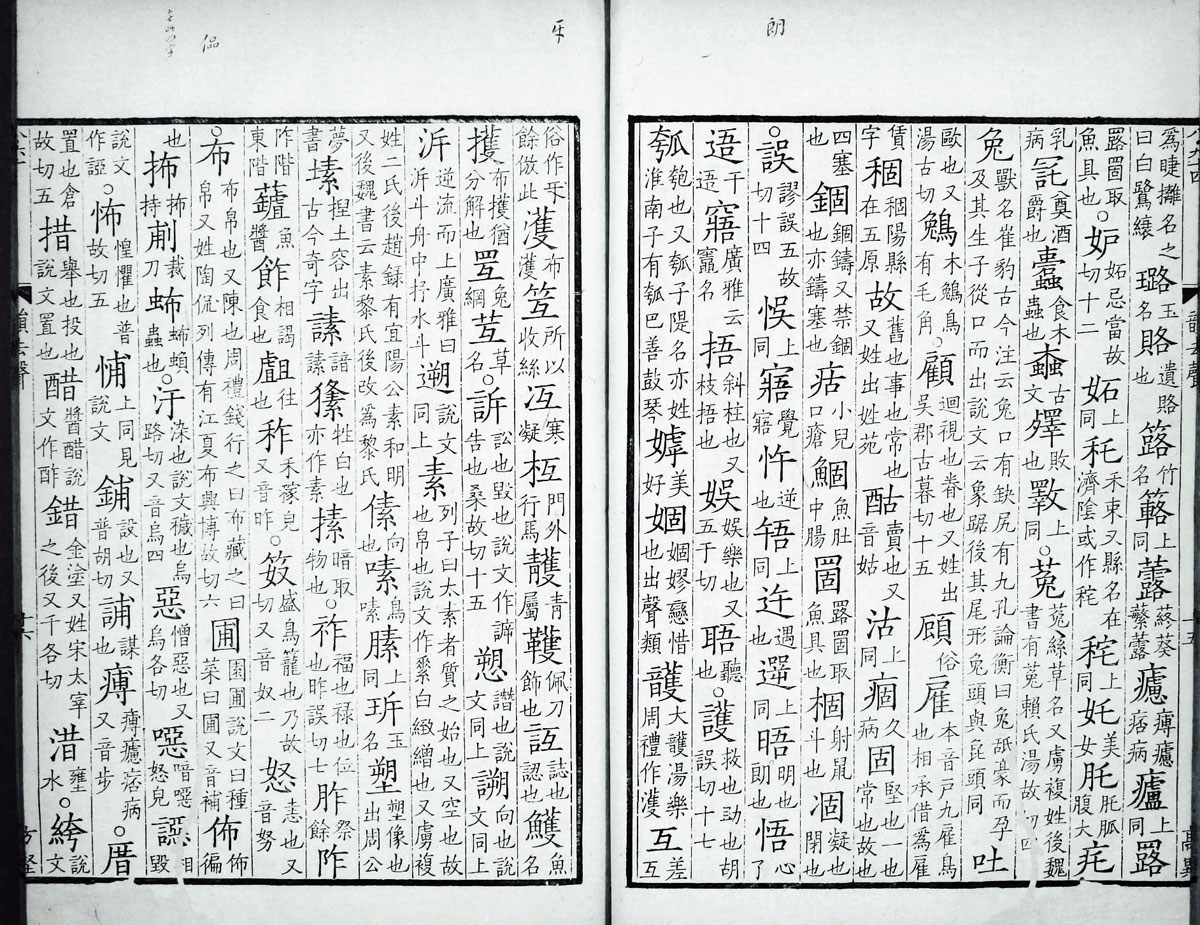 爲睫攡名之曰白鷺縗 璐玉名 賂遺賂也 簬竹名 簵上同 蕗蔠葵蘩蕗 痞病 上同
罟取魚具也○妒妬忌當故切十二 妬上同 秅禾束又縣名在濟陰或作秺 秺上同 奼美女 腹大
乳病 奠酒爵也 蠹食木蟲也 古文 殬敗也 斁上同○菟菟絲草名又虜複姓後魏書有菟賴氏湯故切四
兔獸名崔豹古今注云兔口有缺尻有九孔論衡曰兔舐毫而孕及其生子從口而出說文云象踞後其尾形兔頭與㲋頭同 吐
歐也又湯古切 鵵木鵵鳥有毛角○顧迴視也眷也又姓出吳郡古暮切十五 頋俗 雇本音戶九雇鳥也相承借爲雇
賃字 稒稒陽縣在五原 故舊也事也常也又姓出姓苑 酤賣也又音姑 沽上同 痼久病 固堅也一也常也故也
四塞也 錮錮鑄又禁錮也亦鑄塞也 小兒口瘡 鯝魚肚中腸 罟取魚具也 棝射鼠斗也 凅凝也閉也
○誤謬誤五故切十四 悞上同 寤覺寤 忤逆也 啎上同 迕遇也 遻上同 晤明也朗也 悟心了
干 廣雅云竈名 捂斜柱也又枝捂也 娛娛樂也又五于切 聽也○護救也助也胡誤切十七
瓠匏也又瓠子隄名亦姓淮南子有瓠巴善鼓琴 嫭美好 婟婟嫪戀惜也出聲類 頀大頀湯樂周禮作濩 互差互
俗作餘倣此 濩布濩 所以收絲 冱寒凝 枑門外行馬 青屬 韄佩刀飾也 誌也認也 鱯魚名
擭布擭猶分解也 兔網 草名○訴訟也毀也說文作諦告也桑故切十五 愬譖也說文同上 向也說文同上
泝逆流而上廣雅曰泝斗舟中抒水斗 遡說文同上 素列子曰太素者質之始也又空也故也帛也說文作白緻繒也又虜複
姓二氏後趙錄有宜陽公素和明又後魏書云素黎氏後改爲黎氏 傃向也 嗉鳥嗉 膆上同 玉名 塑塑像也出周公
夢書 塐揑土容出古今奇字 諳 牲白也亦作素 暗取物也○祚福也祿也位也昨誤切七 胙祭餘 阼
阼階東階 魚醬 飵相謁食也 往也 秨禾稼皃又音昨○笯盛鳥籠也乃故切又音奴二 怒恚也又音努
○布布帛也又陳也周禮錢行之曰布藏之曰帛又姓陶侃列傳有江夏布興博故切六 圃園圃說文曰種菜曰圃又音補 佈佈徧
也 抪抪持 裁刀 蟲也○汙染也說文穢也烏路切又音烏四 惡憎惡也又烏各切 噁喑噁怒皃 相毀
說文作䛩○怖惶懼也普故切五 悑上同見說文 鋪設也又普胡切 誧謀也 痞病又音步○厝
置也倉故切五 措舉也投也說文置也 醋醬醋說文作酢 錯金塗又姓宋太宰之後又千各切 壅水○絝說文
朗